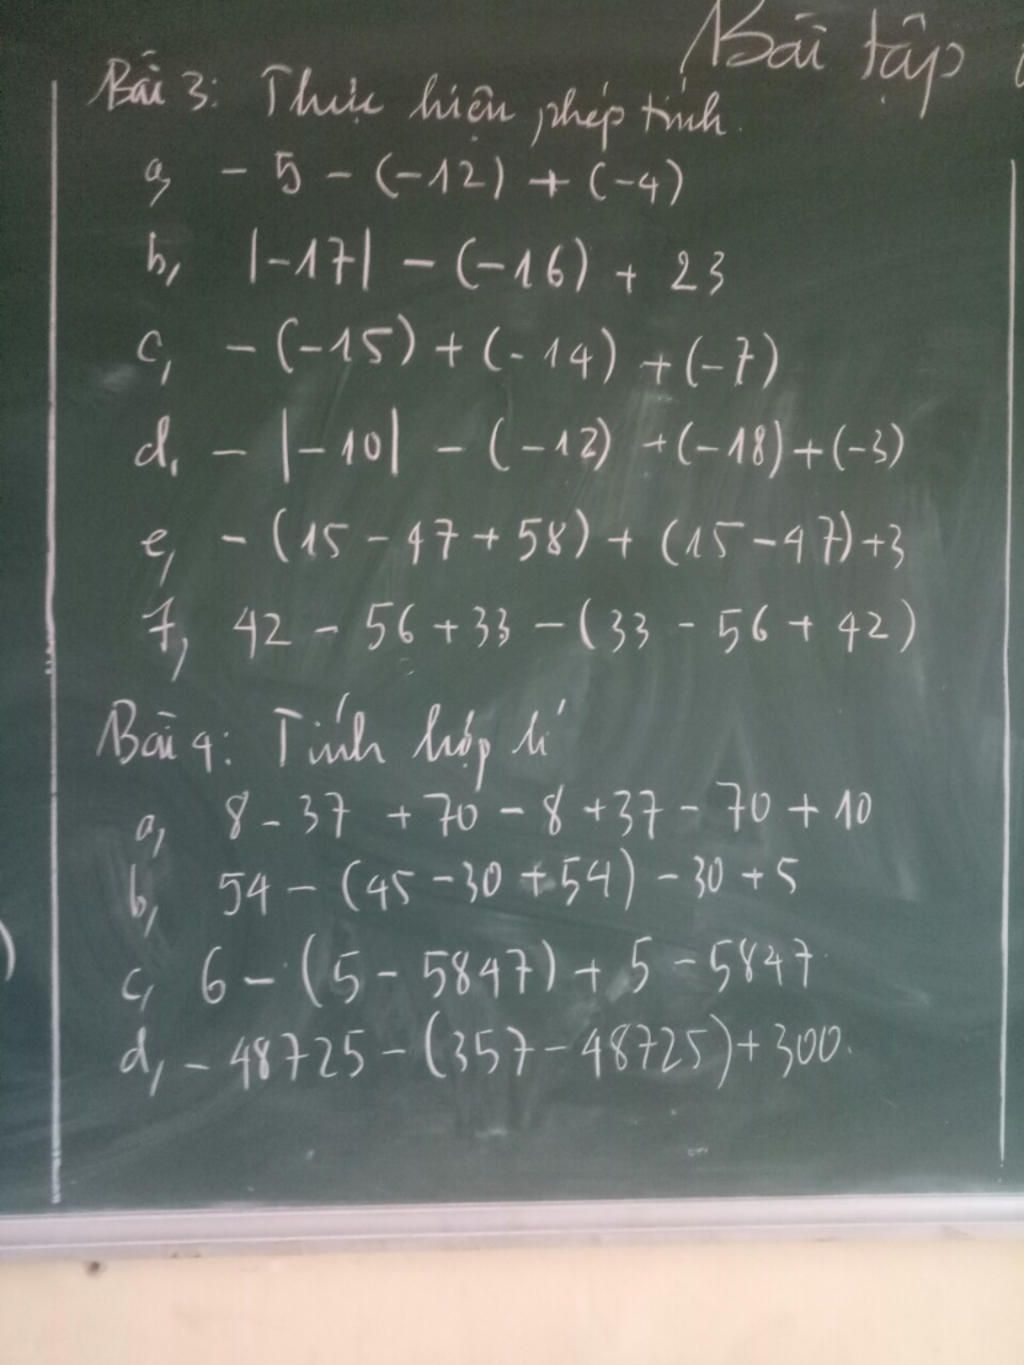 Bài tập
Bài 3: Thực hiện phép tính.
a, - 5 - (-12) + (-4)
b, |-17| - (-16) + 23
c, - (-15) + (-14) + (-7)
d, - |-10| - (-12) + (-18) + (-3)
e, - (15 - 47 + 58) + (15 - 47) + 3
f, 42 - 56 + 33 - (33 - 56 + 42)
Bài 4: Tính hợp lí
a, 8 - 37 + 70 - 8 + 37 - 70 + 10
b, 54 - (45 - 30 + 54) - 30 + 5
c, 6 - (5 - 5847) + 5 - 5847
d, - 48725 - (357 - 48725) + 300.